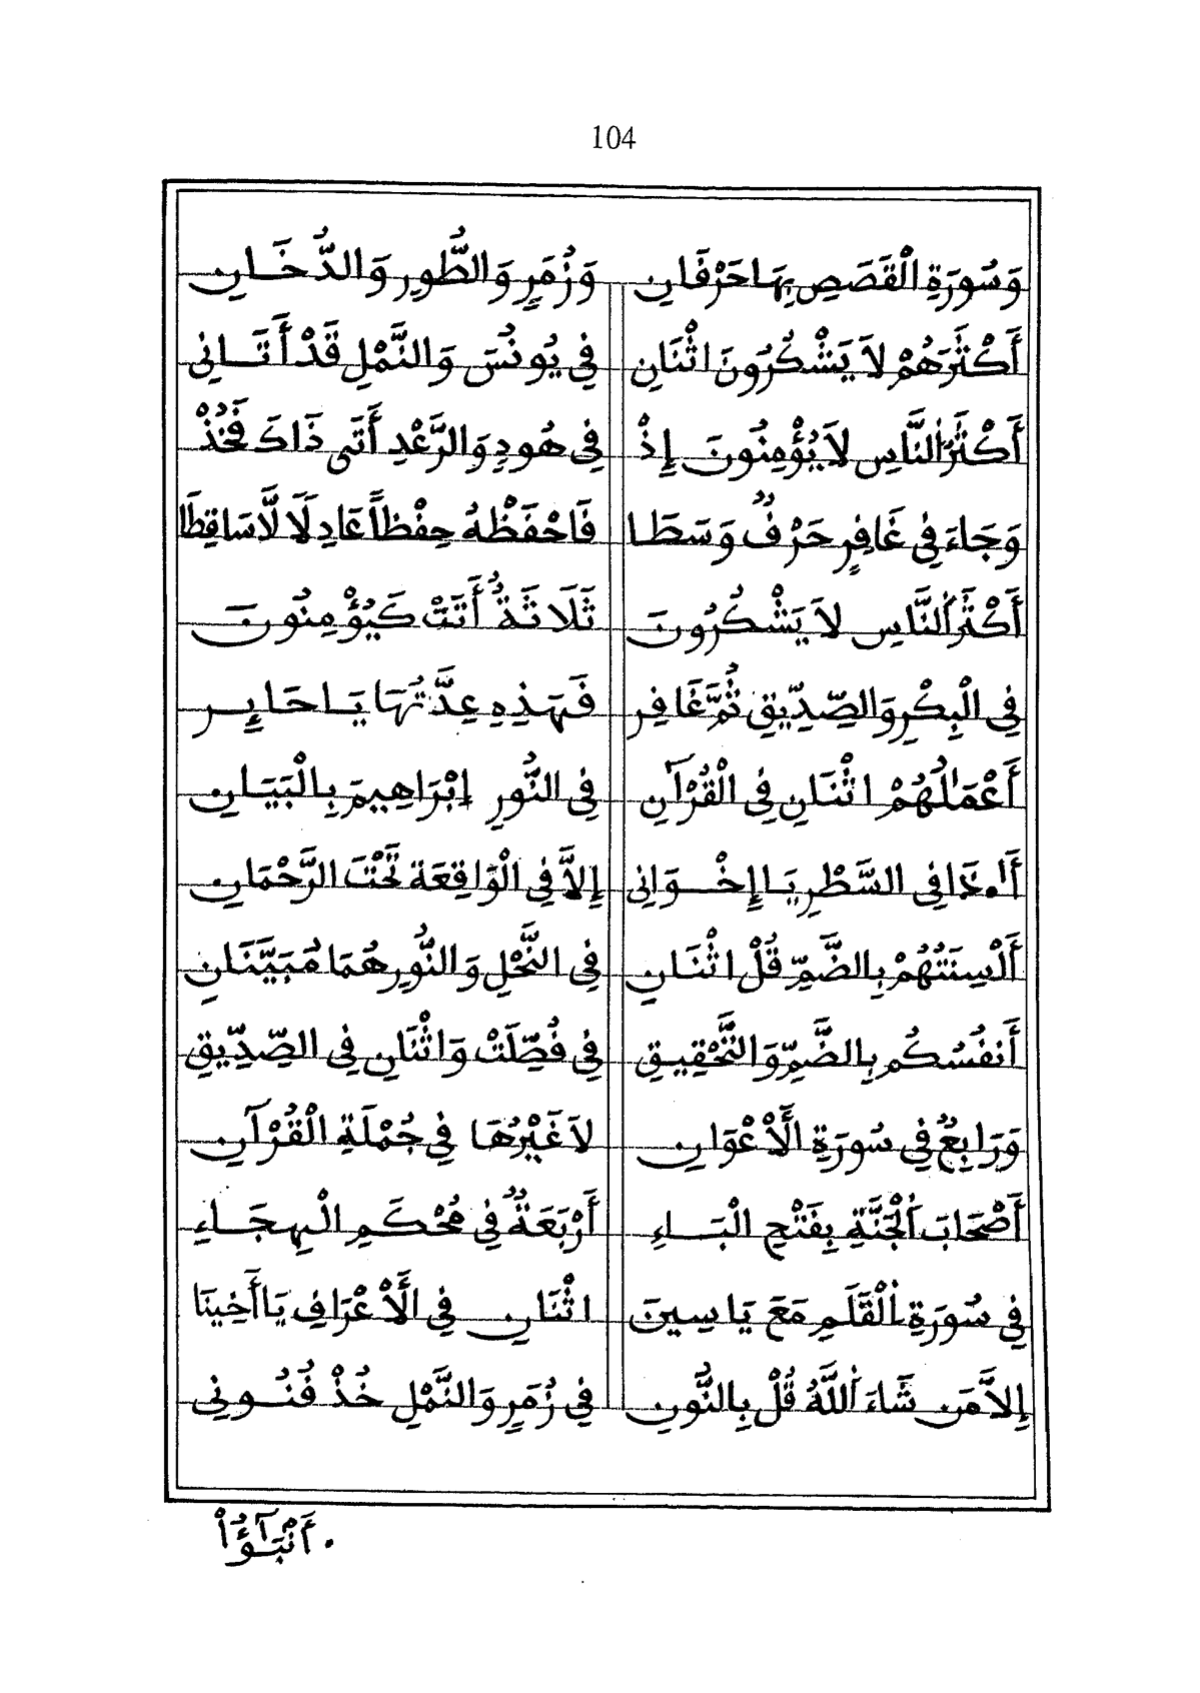 104
وَسُورَةِ الْقَصَصِ بِهَا حَرْفَانِ وَزُمَرٍ وَالطُّورِ وَالدُّخَانِ
أَكْثَرَهُمْ لاَ يَشْكُرُونَ اثْنَانِ فِي يُونُسَ وَالنَّمْلِ قَدْ أَتَانِي
أَكْثَرَ النَّاسِ لاَ يُؤْمِنُونَ إِذْ فِي هُودٍ وَالرَّعْدِ أَتَى ذَاكَ فَخُذْ
وَجَاءَ فِي غَافِرٍ حَرْفٌ وَسَطَا فَاحْفَظْهُ حِفْظاً عَادِلَا لَّا سَاقِطَا
أَكْثَرَ النَّاسِ لاَ يَشْكُرُونَ ثَلَاثَةٌ أَتَتْ كَيُؤْمِنُونَ
فِي الْبِكْرِ وَالصِّدِّيقِ ثُمَّ غَافِرِ فَهَذِهِ عِدَّتُهَا يَا حَايِرِ
أَعْمَالُهُمْ اثْنَانِ فِي الْقُرْآنِ فِي النُّورِ إِبْرَاهِيمَ بِالْبَيَانِ
أَا۟ذَا فِي السَّطْرِ يَا إِخْوَانِي إِلاَّ فِي الْوَاقِعَة تَحْتَ الرَّحْمَانِ
أَلْسِنَتُهُمْ بِالضَّمِّ قُلْ اثْنَانِ فِي النَّحْلِ وَالنُّورِ هُمَا مُبَيَّنَانِ
أَنفُسُكُم بِالضَّمِّ وَالتَّحْقِيقِ فِي فُصِّلَتْ وَاثْنَانِ فِي الصِّدِّيقِ
وَرَابِعٌ فِي سُورَةِ الَأَعْوَانِ لاَ غَيْرُهَا فِي جُمْلَةِ الْقُرْآنِ
أَصْحَابَ الْجَنَّةِ بِفَتْحِ الْبَاءِ أَرْبَعَةٌ فِي مُحْكَمِ الْهِجَاءِ
فِي سُورَةِ الْقَلَمِ مَعَ يَاسِينَ اثْنَانِ فِي الَأَعْرَافِ يَا أَخِينَا
إِلاَّ مَن شَاءَ اللَّهُ قُلْ بِالنُّونِ فِي زُمَرٍ وَالنَّمْلِ خُذْ فُنُونِي
. أَنْبَٰٓؤُا۟